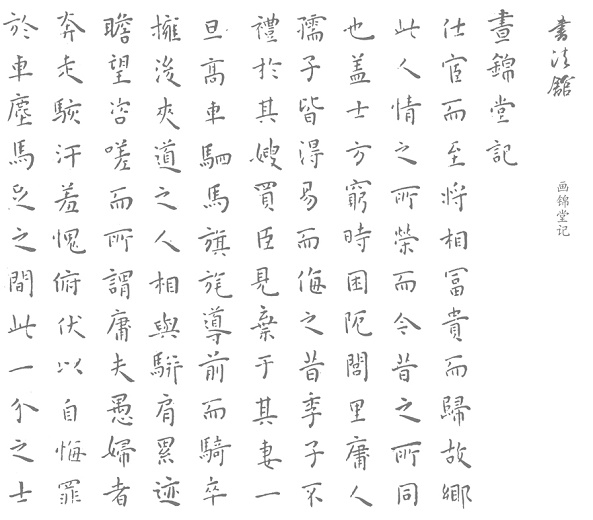 书法舘
画锦堂记
晝錦堂記
仕宦而至将相冨貴而歸故鄉
此人情之所榮而今昔之所同
也盖士方窮時困阨閭里庸人
孺子皆得易而侮之昔季子不
禮於其嫂買臣見棄于其妻一
旦高車駟馬旗旄導前而騎卒
擁後夾道之人相與駢肩累迹
瞻望咨嗟而所謂庸夫愚婦者
奔走駭汗羞愧俯伏以自悔罪
於車塵馬足之間此一介之士